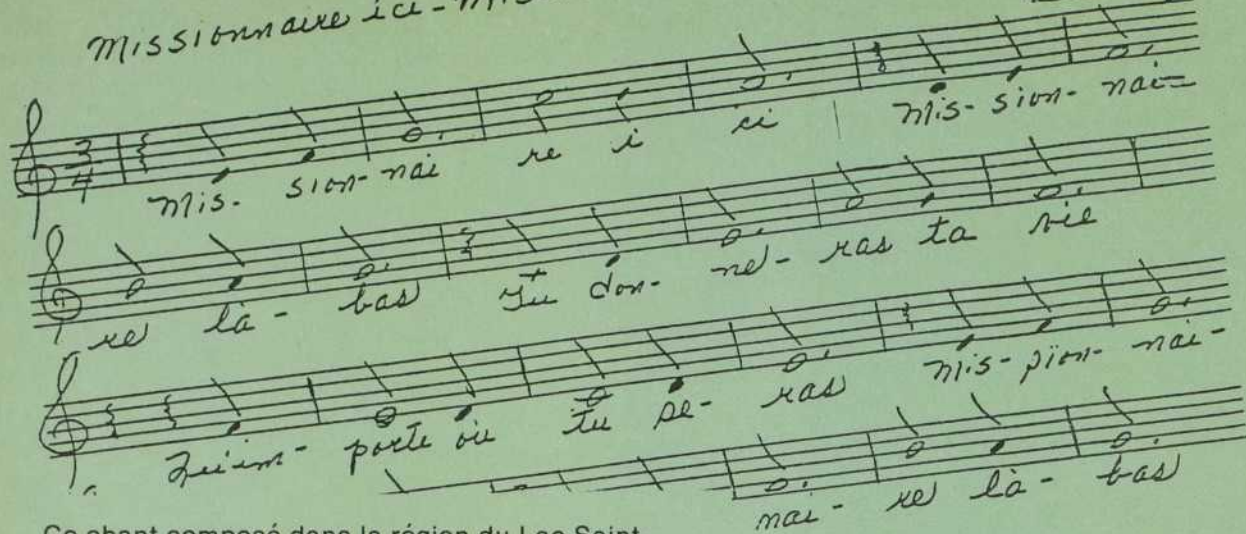 Missionnaire ici - Mis
3 4
Mis- sion- nai re i ci Mis- sion- nai-
re là- bas Tu don- ne- ras ta vie
Qu'im- porte où tu se- ras Mis- sion- nai-
nai- re là- bas
Ce chant composé dans la région du Lac Saint